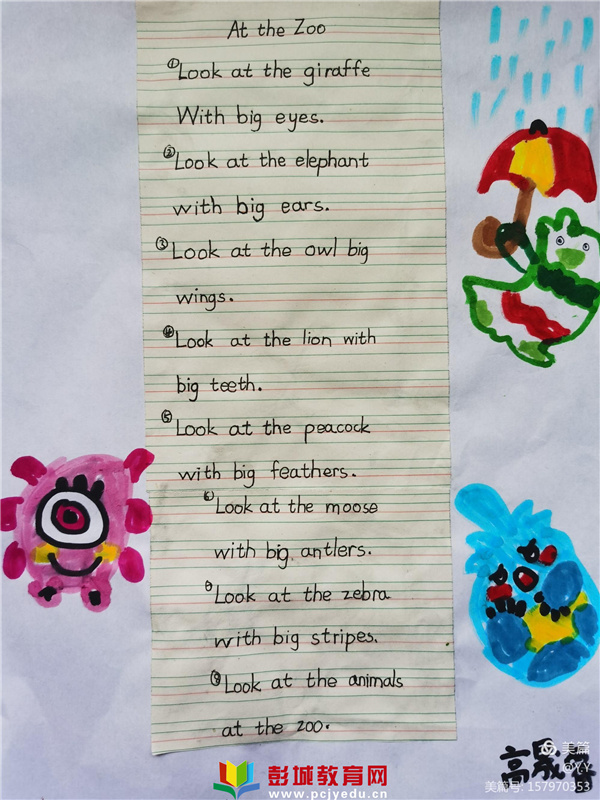 At the Zoo
①Look at the giraffe
With big eyes.
②Look at the elephant
with big ears.
③Look at the owl big
wings.
④Look at the lion with
big teeth.
⑤Look at the peacock
with big feathers.
⑥Look at the moose
with big antlers.
Look at the zebra
with big stripes.
Look at the animals
at the zoo.
高晟
美篇
@YY
美篇号: 157970353
彭城教育网
www.pcjyedu.cn